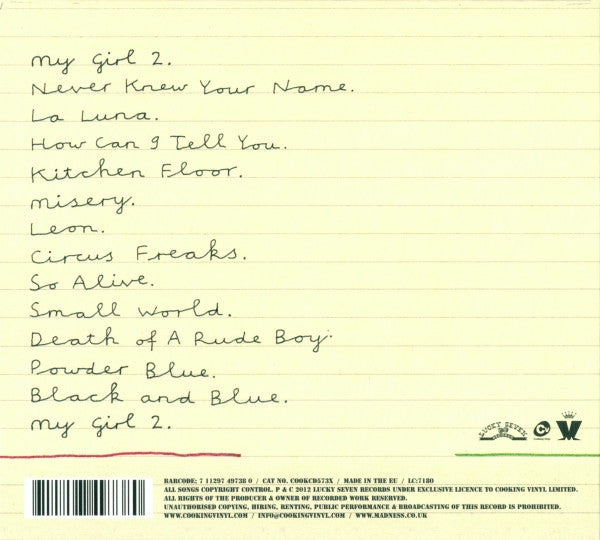 My Girl 2.
Never Knew Your Name.
La Luna.
How Can I Tell You.
Kitchen Floor.
Misery.
Leon.
Circus Freaks.
So Alive.
Small World.
Death of A Rude Boy.
Powder Blue.
Black and Blue.
My Girl 2.
LUCKY SEVEN
BARCODE: 7 11297 49738 0 / CAT NO. COOKCD573X / MADE IN THE EU / LC:7180
ALL SONGS COPYRIGHT CONTROL. P & C 2012 LUCKY SEVEN RECORDS UNDER EXCLUSIVE LICENCE TO COOKING VINYL LIMITED.
ALL RIGHTS OF THE PRODUCER & OWNER OF RECORDED WORK RESERVED.
UNAUTHORISED COPYING, HIRING, RENTING, PUBLIC PERFORMANCE & BROADCASTING OF THIS RECORD IS PROHIBITED.
WWW.COOKINGVINYL.COM / INFO@COOKINGVINYL.COM / WWW.MADNESS.CO.UK